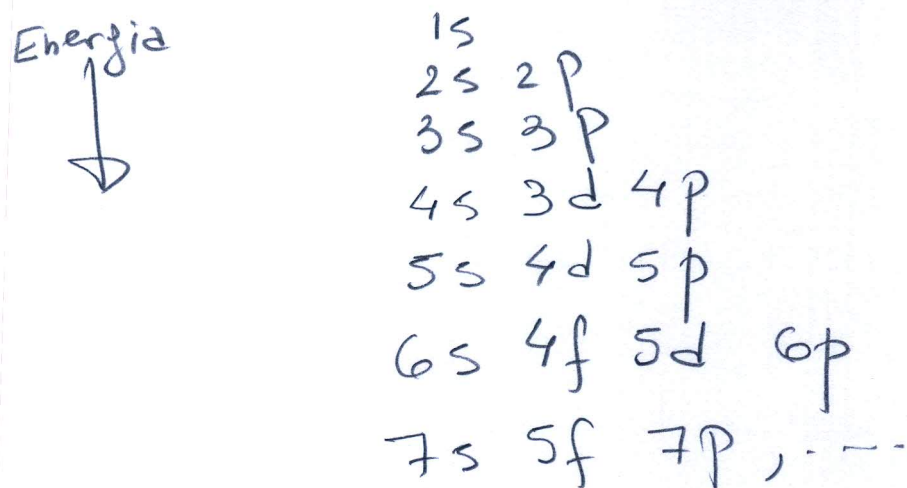 Energia
1s
2s 2p
3s 3p
4s 3d 4p
5s 4d 5p
6s 4f 5d 6p
7s 5f 7p, ....